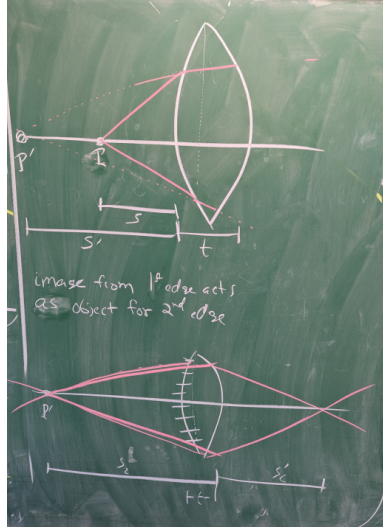 P'
P
s
s'
t
image from 1st edge acts
as object for 2nd edge
P'
t